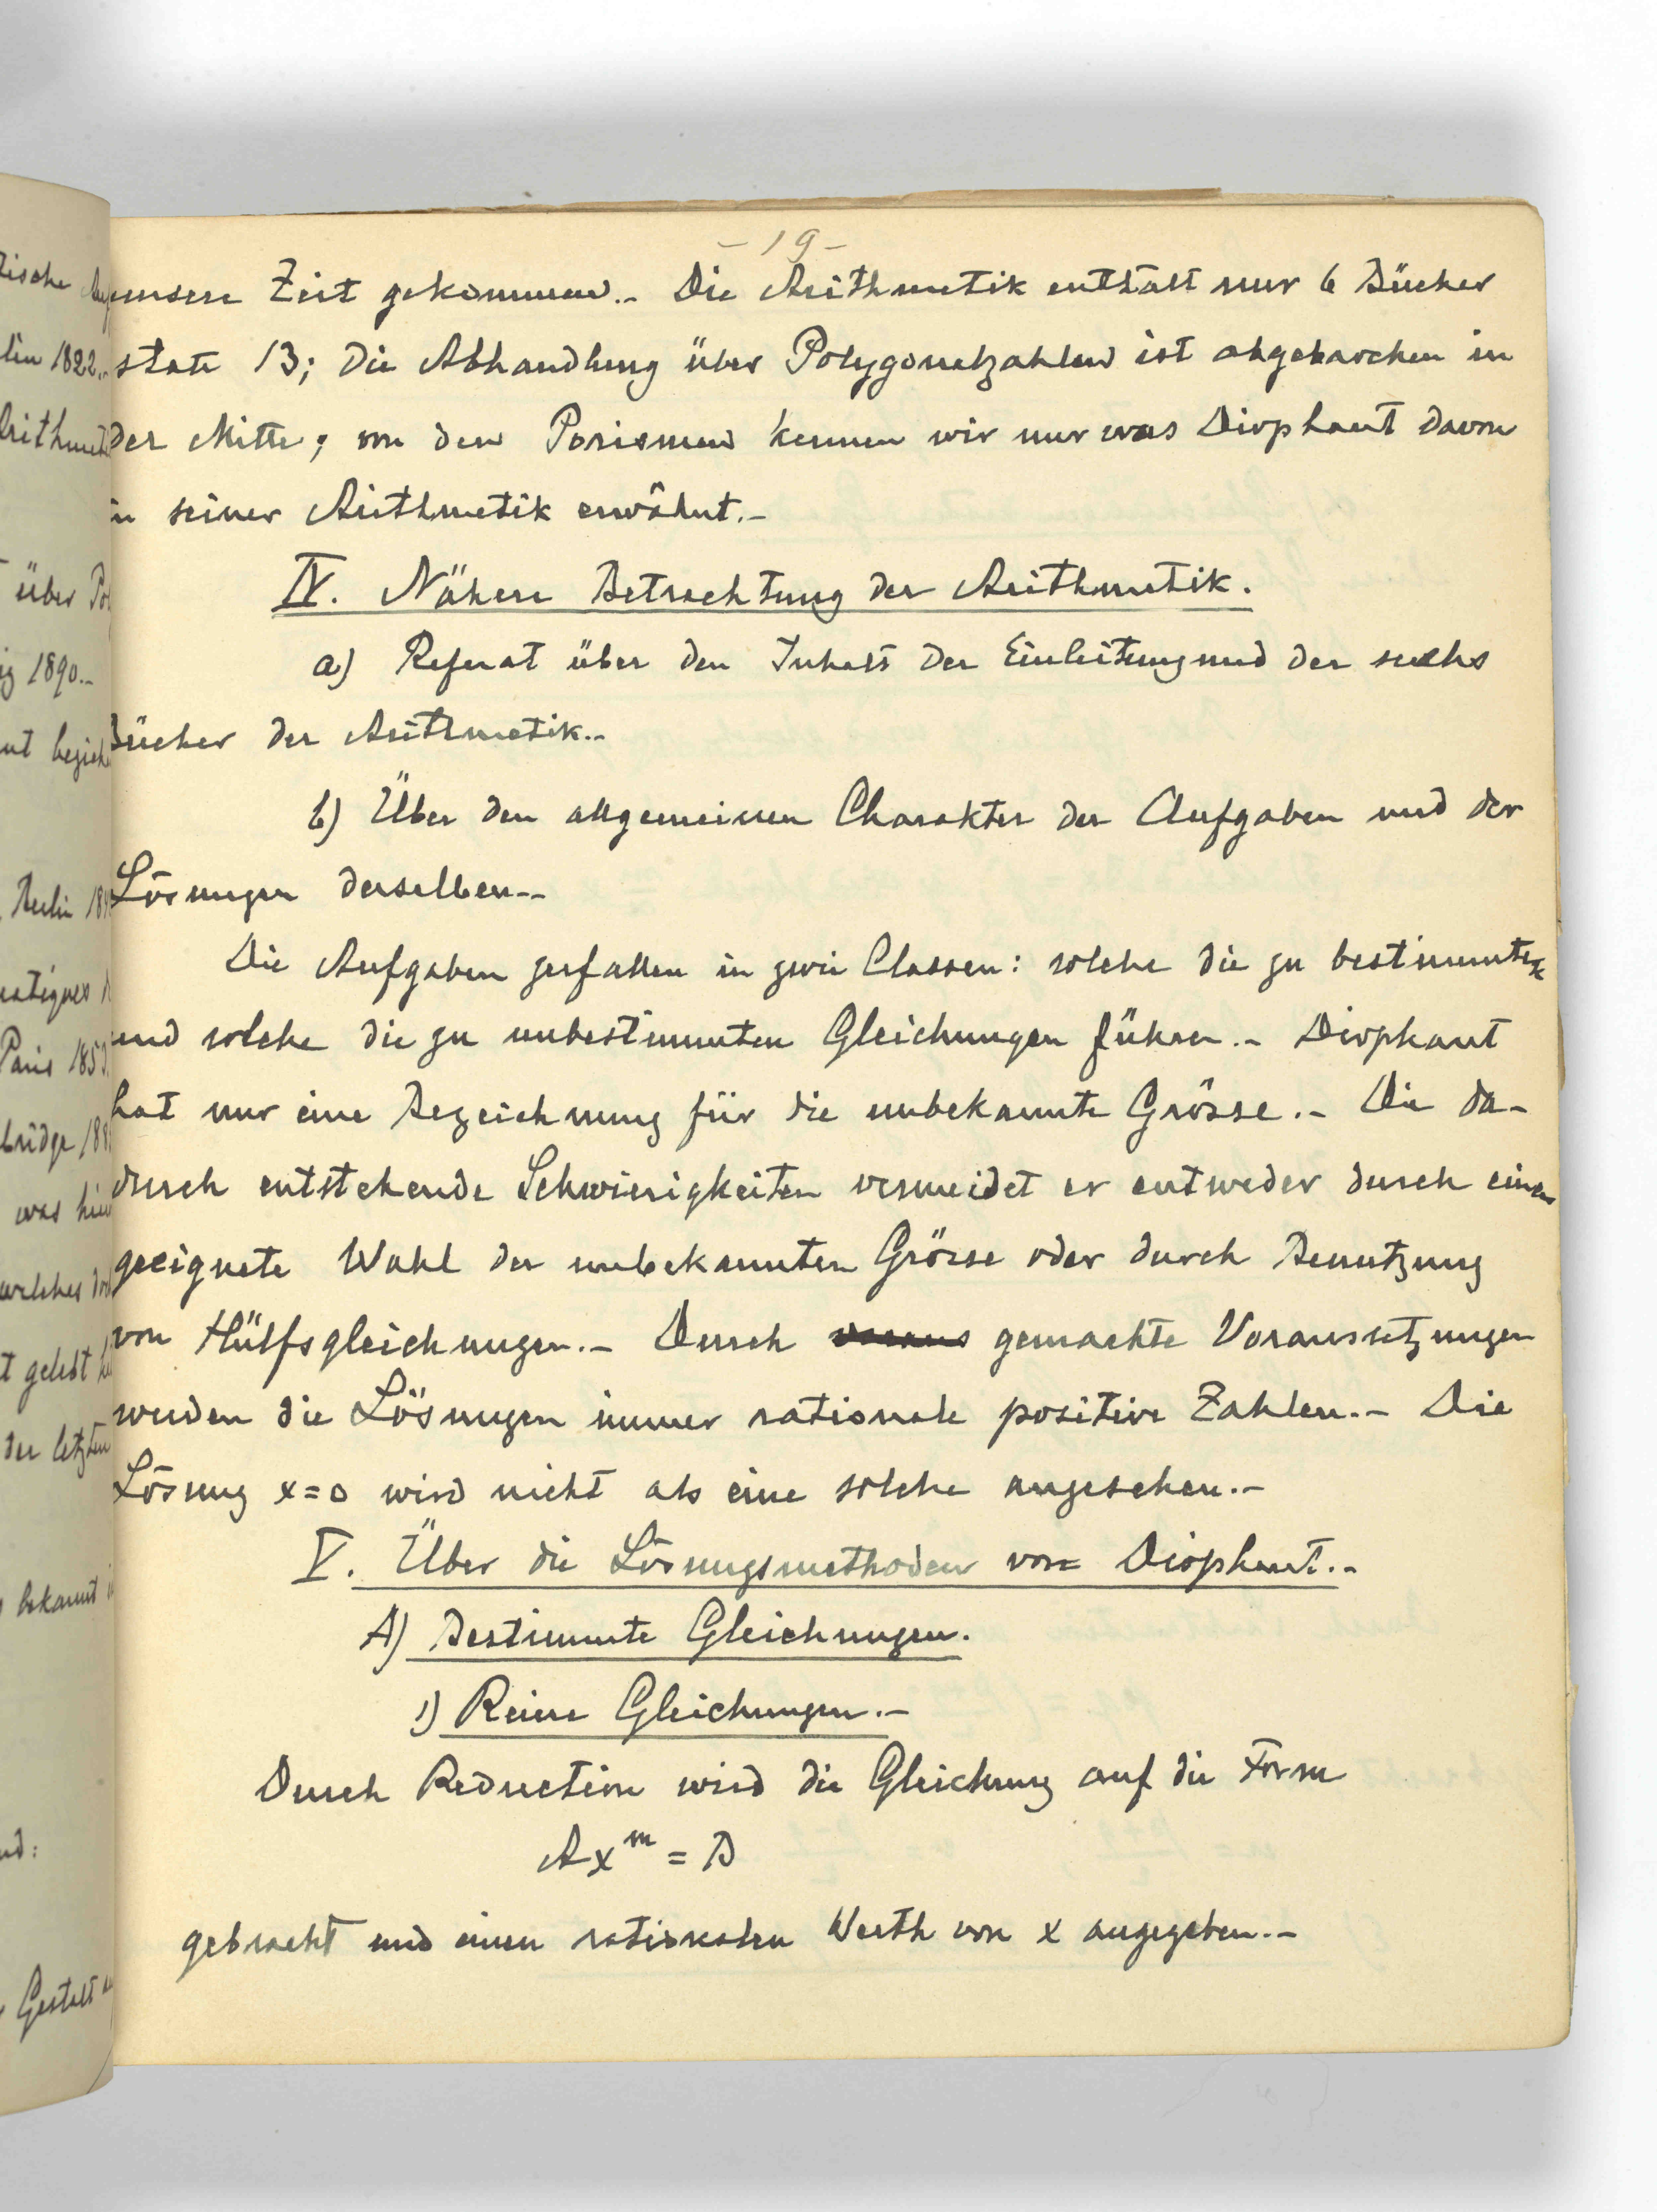 - 19 -
unsere Zeit gekommen.- Die Arithmetik enthält nur 6 Bücher
statt 13; die Abhandlung über Polygonalzahlen ist abgebrochen in
der Mitte; von den Porismen kennen wir nur was Diophant davon
in seiner Arithmetik erwähnt.-
IV. Nähere Betrachtung der Arithmetik.
a) Referat über den Inhalt der Einleitung und der sechs
Bücher der Arithmetik.-
b) Über den allgemeinen Charakter der Aufgaben und der
Lösungen derselben.-
Die Aufgaben zerfallen in zwei Classen: solche die zu bestimmten
und solche die zu unbestimmten Gleichungen führen.- Diophant
hat nur eine Bezeichnung für die unbekannte Grösse.- Die da-
durch entstehende Schwierigkeiten vermeidet er entweder durch eine
geeignete Wahl der unbekannten Grösse oder durch Benutzung
von Hülfsgleichungen.- Durch gemachte Voraussetzungen
werden die Lösungen immer rationale positive Zahlen.- Die
Lösung x=0 wird nicht als eine solche angesehen.-
V. Über die Lösungsmethoden von Diophant.-
A) Bestimmte Gleichungen.
1) Reine Gleichungen.-
Durch Reduction wird die Gleichung auf die Form
Ax^m = B
gebracht und einen rationalen Werth von x angegeben.-
tische
lin 1822.-
Arithmet
über Po
ig 1890.-
nt bezieh
Berlin 18
matiques
Paris 185
bridge 18
was hie
welches
t gelebt
der letzten
bekannt
nd:
Gestalt